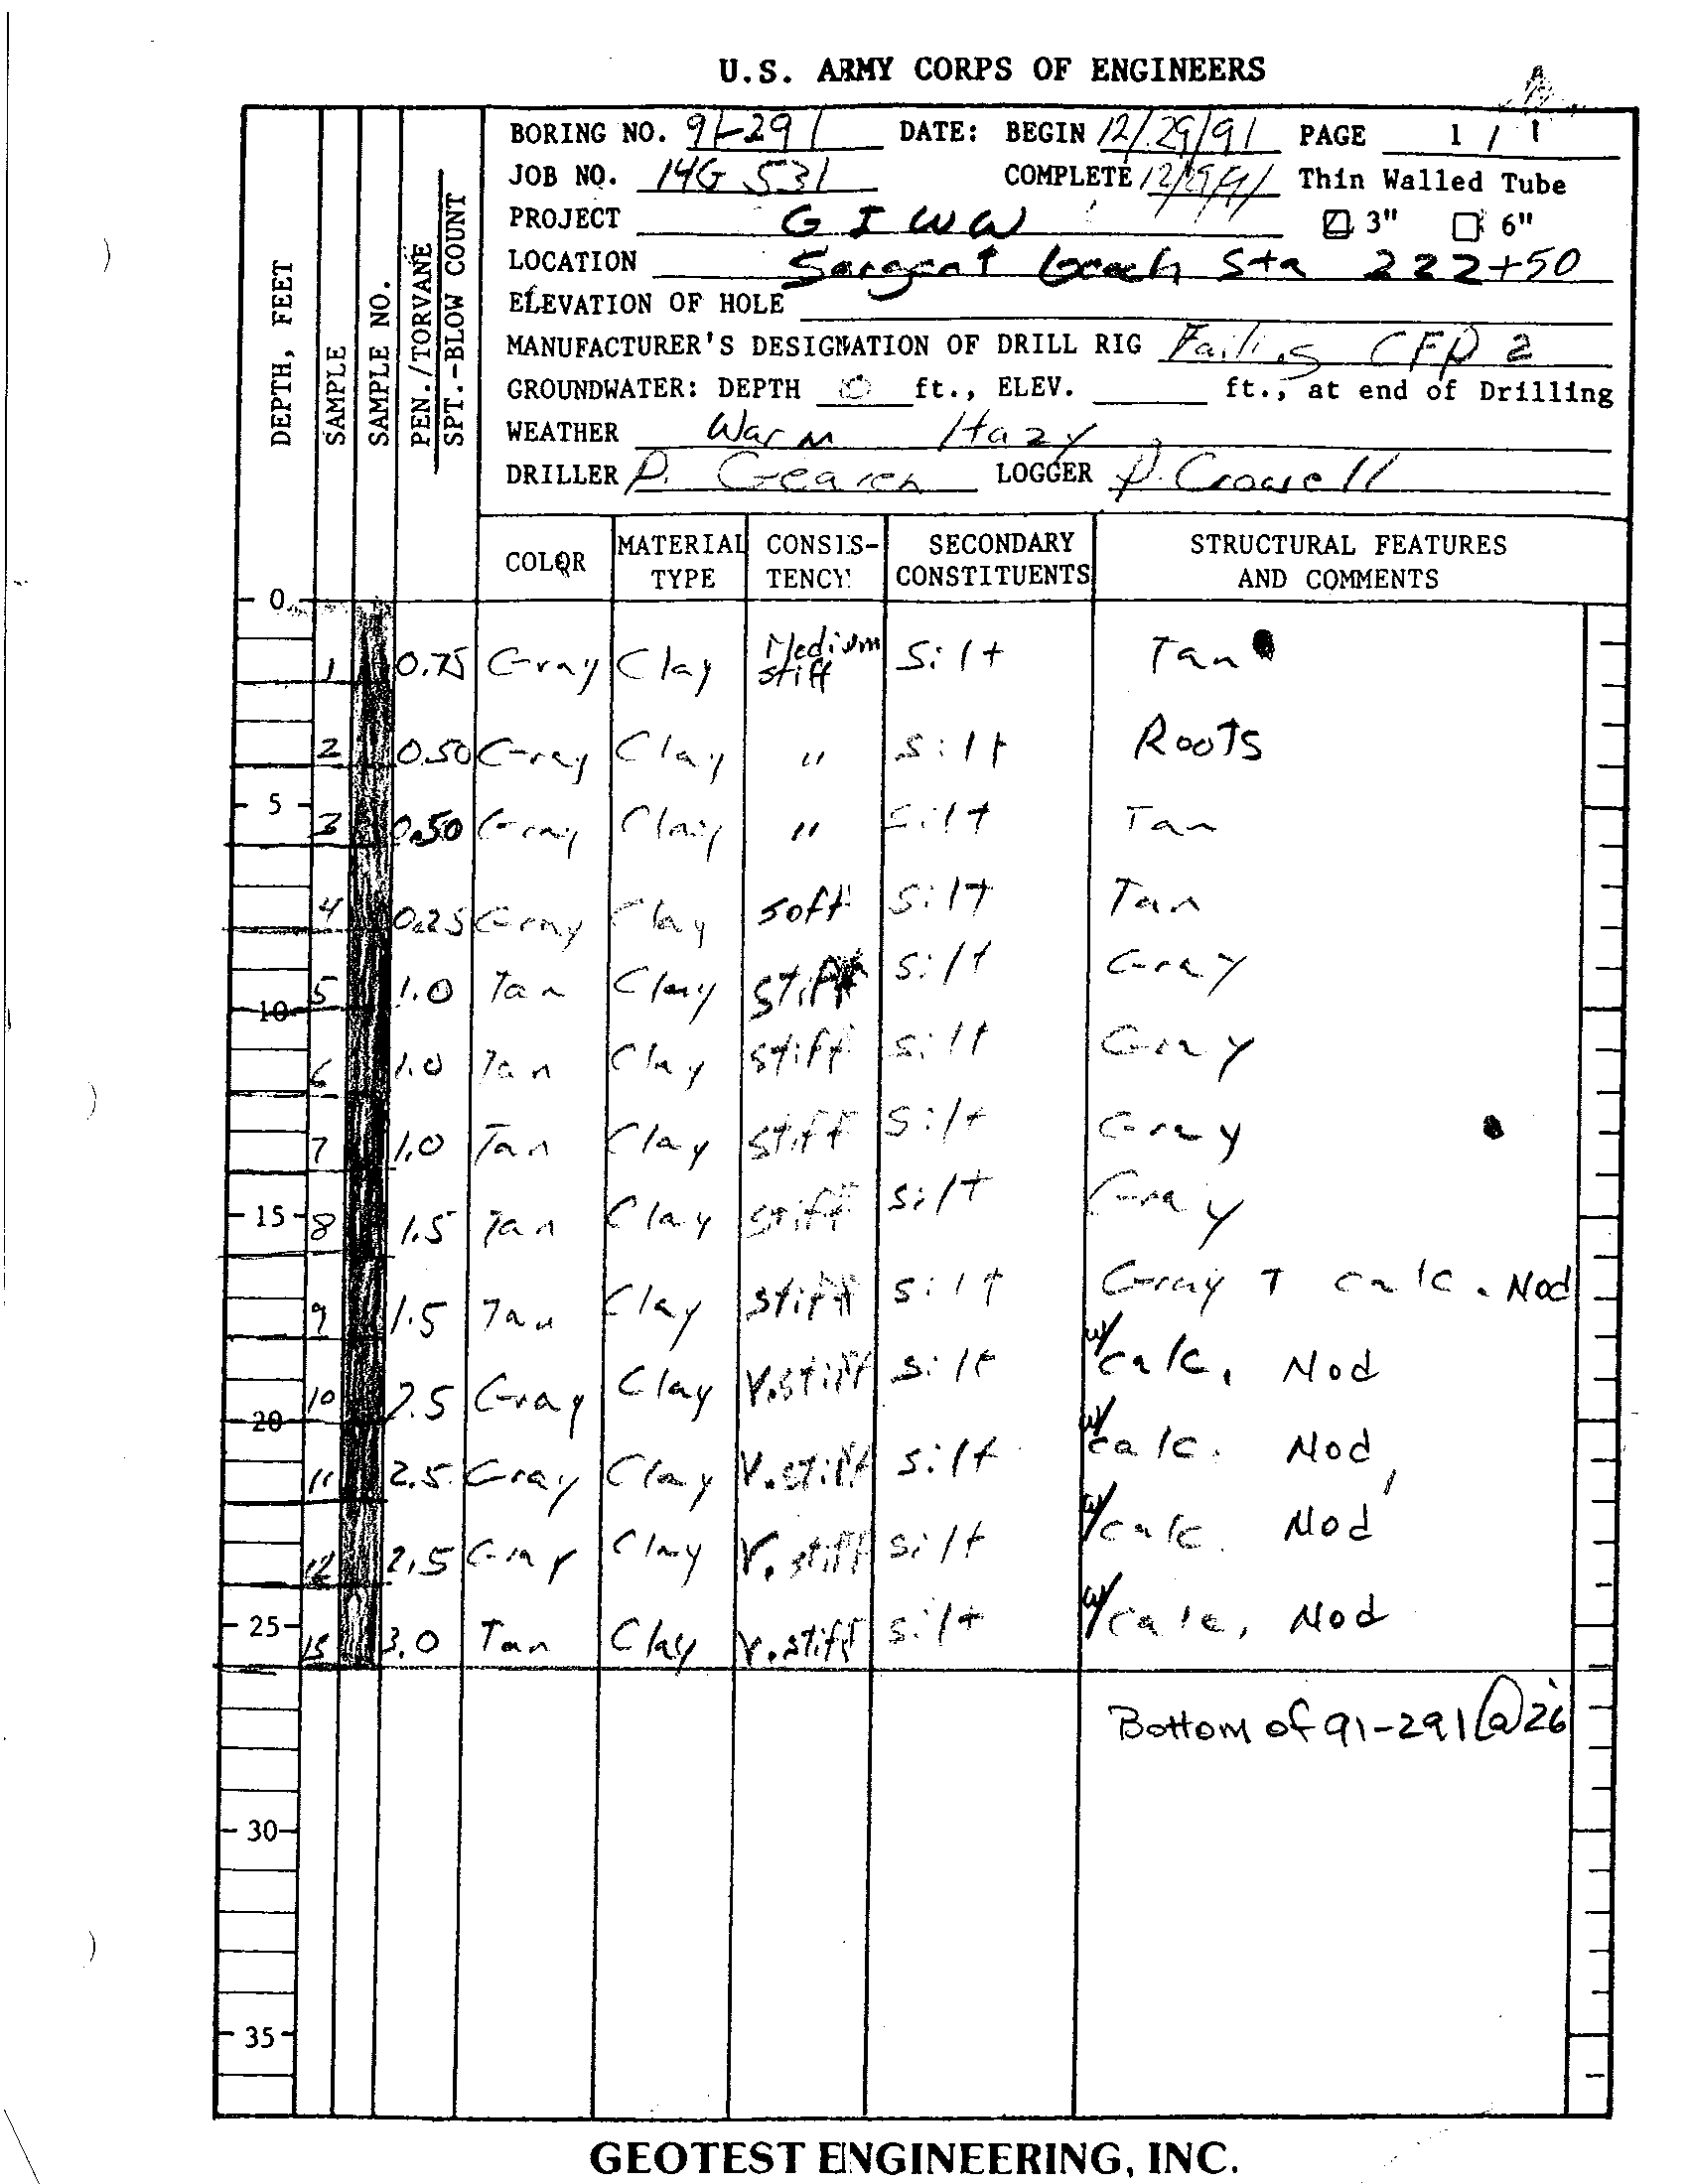 U.S. ARMY CORPS OF ENGINEERS
BORING NO. 91-291 DATE: BEGIN 12/29/91 PAGE 1 / 1
JOB NO. 14G 531 COMPLETE 12/29/91 Thin Walled Tube
PROJECT GIWW 3" 6"
LOCATION Sargent beach Sta 222+50
ELEVATION OF HOLE
MANUFACTURER'S DESIGNATION OF DRILL RIG Failing CFD 2
GROUNDWATER: DEPTH 0 ft., ELEV. ft., at end of Drilling
WEATHER Warm Hazy
DRILLER D. LOGGER P. Crowell
DEPTH, FEET
SAMPLE
SAMPLE NO.
PEN./TORVANE
SPT.-BLOW COUNT
COLOR MATERIAL TYPE CONSIS-TENCY SECONDARY CONSTITUENTS STRUCTURAL FEATURES AND COMMENTS
0
1 0.75 Gray Clay Medium stiff Silt Tan
2 0.50 Gray Clay " Silt Roots
5
3 0.50 Gray Clay " Silt Tan
4 0.25 Gray Clay soft Silt Tan
5 1.0 Tan Clay stiff Silt Gray
10
6 1.0 Tan Clay stiff Silt Gray
7 1.0 Tan Clay stiff Silt Gray
15
8 1.5 Tan Clay stiff Silt Gray
9 1.5 Tan Clay stiff Silt Gray T calc. Nod
10 2.5 Gray Clay V.stiff Silt w/calc. Nod
20
11 2.5 Gray Clay V.stiff silt w/calc. Nod
12 2.5 Gray Clay V.stiff silt w/calc. Nod
25
13 3.0 Tan Clay V.stiff silt w/calc. Nod
Bottom of 91-291 @ 26'
30
35
GEOTEST ENGINEERING, INC.